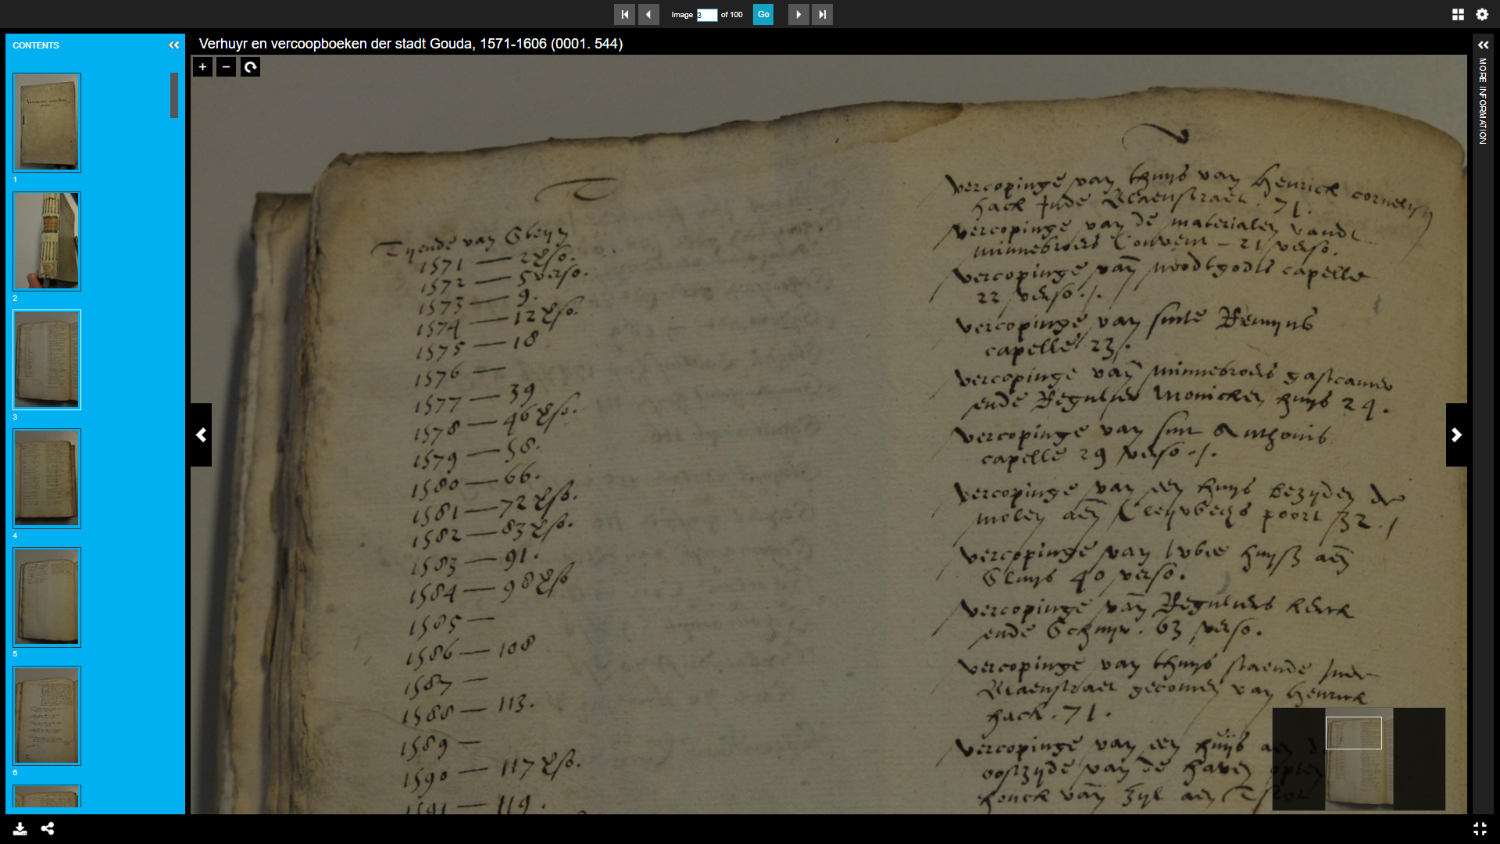 Image 3 of 100 Go
CONTENTS
Verhuyr en vercoopboeken der stadt Gouda, 1571-1606 (0001. 544)
MORE INFORMATION
1
2
3
4
5
6
T
Tijende van Sleyn
1571 — 2 v͏so.
1572 — 5 verso.
1573 — 9.
1574 — 12 vso.
1575 — 18
1576 —
1577 — 39
1578 — 46 vso.
1579 — 58.
1580 — 66.
1581 — 72 vso.
1582 — 83 vso.
1583 — 91.
1584 — 98 vso
1585 —
1586 — 108
1587 —
1588 — 113.
1589 —
1590 — 117 vso.
1591 — 119.
V
vercopinge van thuys van Henrick cornelisz
hack inde Vlaenstraet. 71.
vercopinge van de materialen vandt
minnebroers Convent — 21 verso.
vercopinge van noodtgodts capelle
22 verso.
vercopinge van sinte Remyns
capelle 23.
vercopinge van minnebroers gastcamer
ende Regulier Monicken huys 24.
vercopinge van sint Anthonis
capelle 29 verso.
vercopinge van een huys bezyden de
molen aen Cleywechs poort 32.
vercopinge van huys aen
Sluys 40 verso.
vercopinge van Reguliers kerck
ende Schuyr. 63 verso.
vercopinge van thuys staende inde
Vlaenstraet gecomen van Henrick
hack. 71.
vercopinge van een huys aen
oostzyde van de haven
honck van Zyl aen